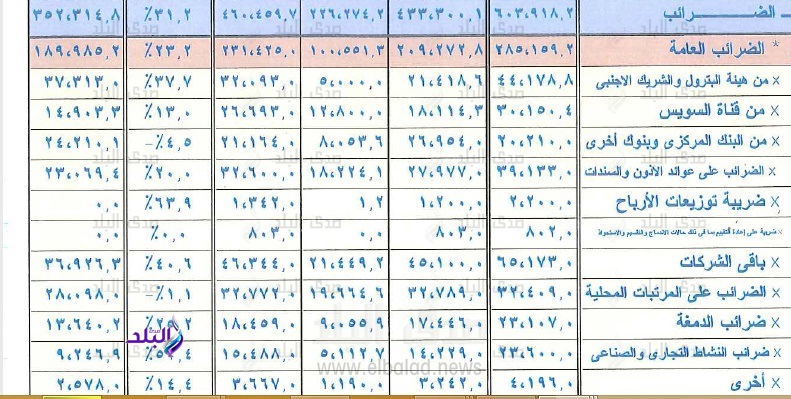 الضـــــرائب ٦٠٣،٩١٨,٢ ٤٣٣،٣٠٠,١ ٢٢٦،٢٧٤,٢ ٤٦٠،٤٥٩,٧ ٪٣١,٢ ٣٥٢،٣١٤,٨
* الضرائب العامة ٢٨٥،١٥٩,٢ ٢٠٩،٢٧٢,٨ ١٠٠،٥٥١,٣ ٢٣١،٤٢٥,٠ ٪٢٣,٢ ١٨٩،٩٨٥,٢
× من هيئة البترول والشريك الاجنبى ٤٤،١٧٨,٨ ٢١،٤١٨,٦ ٥،٠٠٠,٠ ٣٢،٠٩٣,٠ ٪٣٧,٧ ٣٧،٣١٣,٠
× من قناة السويس ٣٠،١٥٠,٤ ١٨،١١٤,٣ ١٢،٨٠٠,٠ ٢٦،٦٩٣,٠ ٪١٣,٠ ١٤،٩٠٣,٣
× من البنك المركزى وبنوك أخرى ٢٠،٢١٠,٠ ٢٦،٩٥٤,٠ ٨،٠٥٣,٦ ٢١،١٦٤,٠ ٪٤,٥- ٢٤،٢١٠,١
× الضرائب على عوائد الأذون والسندات ٣٩،١٣٣,٠ ٢٧،٩٧٧,٠ ١٨،٢٢٤,١ ٣٢،٦٠٠,٠ ٪٢٠,٠ ٢٣،٠٦٩,٤
× ضريبة توزيعات الأرباح ٢،٢٠٠,٠ ١،٢٠٠,٠ ١,٢ ١،٣٤٢,٠ ٪٦٣,٩ ٠,٠
× ضريبة على إعادة التقييم بما فى ذلك حالات الاندماج والتقسيم والاستحواذ ٨٠٢,٠ ٨٠٣,٠ ٠,٠ ٨٠٣,٠ ٪٠,٠ ٠,٠
× باقى الشركات ٦٥،١٧٣,٠ ٤٥،١٠٠,٠ ٢١،٤٤٩,٢ ٤٦،٣٤٤,٠ ٪٤٠,٦ ٣٦،٩٢٦,٣
× الضرائب على المرتبات المحلية ٣٢،٤٠٩,٠ ٣٢،٧٨٩,٠ ١٩،٦٦٤,٦ ٣٢،٧٧٢,٠ ٪١,١- ٢٨،٠٩٨,٠
× ضرائب الدمغة ٢٣،١٠٧,٠ ١٧،٤٤٦,٠ ٩،٠٥٥,٩ ١٨،٤٥٩,٠ ١٣،٦٤٠,٢
× ضرائب النشاط التجارى والصناعى ٢٣،٦٠٠,٠ ١٤،٢٢٩,٠ ٥،١١٢,٧ ١٥،٤٨٨,٠ ٩،٢٤٦,٩
× أخرى ٤،١٩٦,٠ ٣،٢٤٢,٠ ١،١٩٠,٠ ٣،٦٦٧,٠ ٪١٤,٤ ٢،٥٧٨,٠
صدى البلد
www.elbalad.news